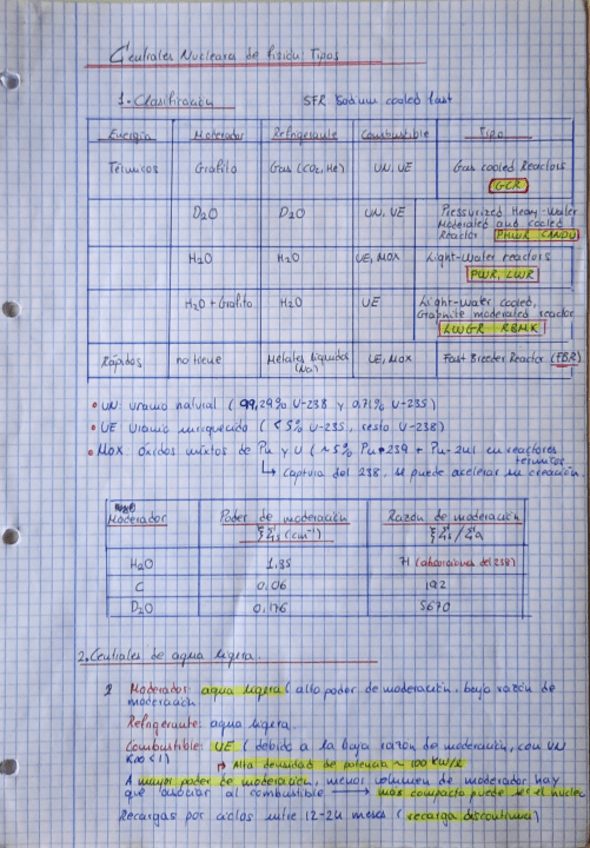 Centrales Nucleares de fisión: Tipos
1. Clasificación SFR Sodium cooled fast
Energía Moderador Refrigerante Combustible Tipo
Térmicos Grafito Gas (CO2, He) UN, UE Gas cooled Reactors
GCR
D2O D2O UN, UE Pressurized Heavy-Water
Moderated and cooled
Reactor PHWR CANDU
H2O H2O UE, MOX Light-Water reactors
PWR, LWR
H2O + Grafito H2O UE Light-Water cooled,
Graphite moderated reactor
LWGR RBMK
Rápidos no tiene Metales líquidos UE, MOX Fast Breeder Reactor (FBR)
(Na)
• UN: uranio natural (99,29% U-238 y 0,71% U-235)
• UE Uranio enriquecido (<5% U-235, resto U-238)
• MOX: óxidos mixtos de Pu y U (~5% Pu-239 + Pu-241 en reactores
térmicos
↳ captura del 238. se puede acelerar su creación.
Moderador Poder de moderación Razón de moderación
ξΣs (cm⁻¹) ξΣs/Σa
H2O 1.35 71 (absorciones del 238)
C 0.06 192
D2O 0,176 5670
2. Centrales de agua ligera.
Moderador: agua ligera (alto poder de moderación. baja razón de
moderación
Refrigerante: agua ligera.
Combustible: UE (debido a la baja razón de moderación, con UN
K∞<1) ↱ Alta densidad de potencia ~ 100 kW/l
A mayor poder de moderación, menos volumen de moderador hay
que asociar al combustible → más compacto puede ser el núcleo
Recargas por ciclos entre 12-24 meses (recarga discontinua)